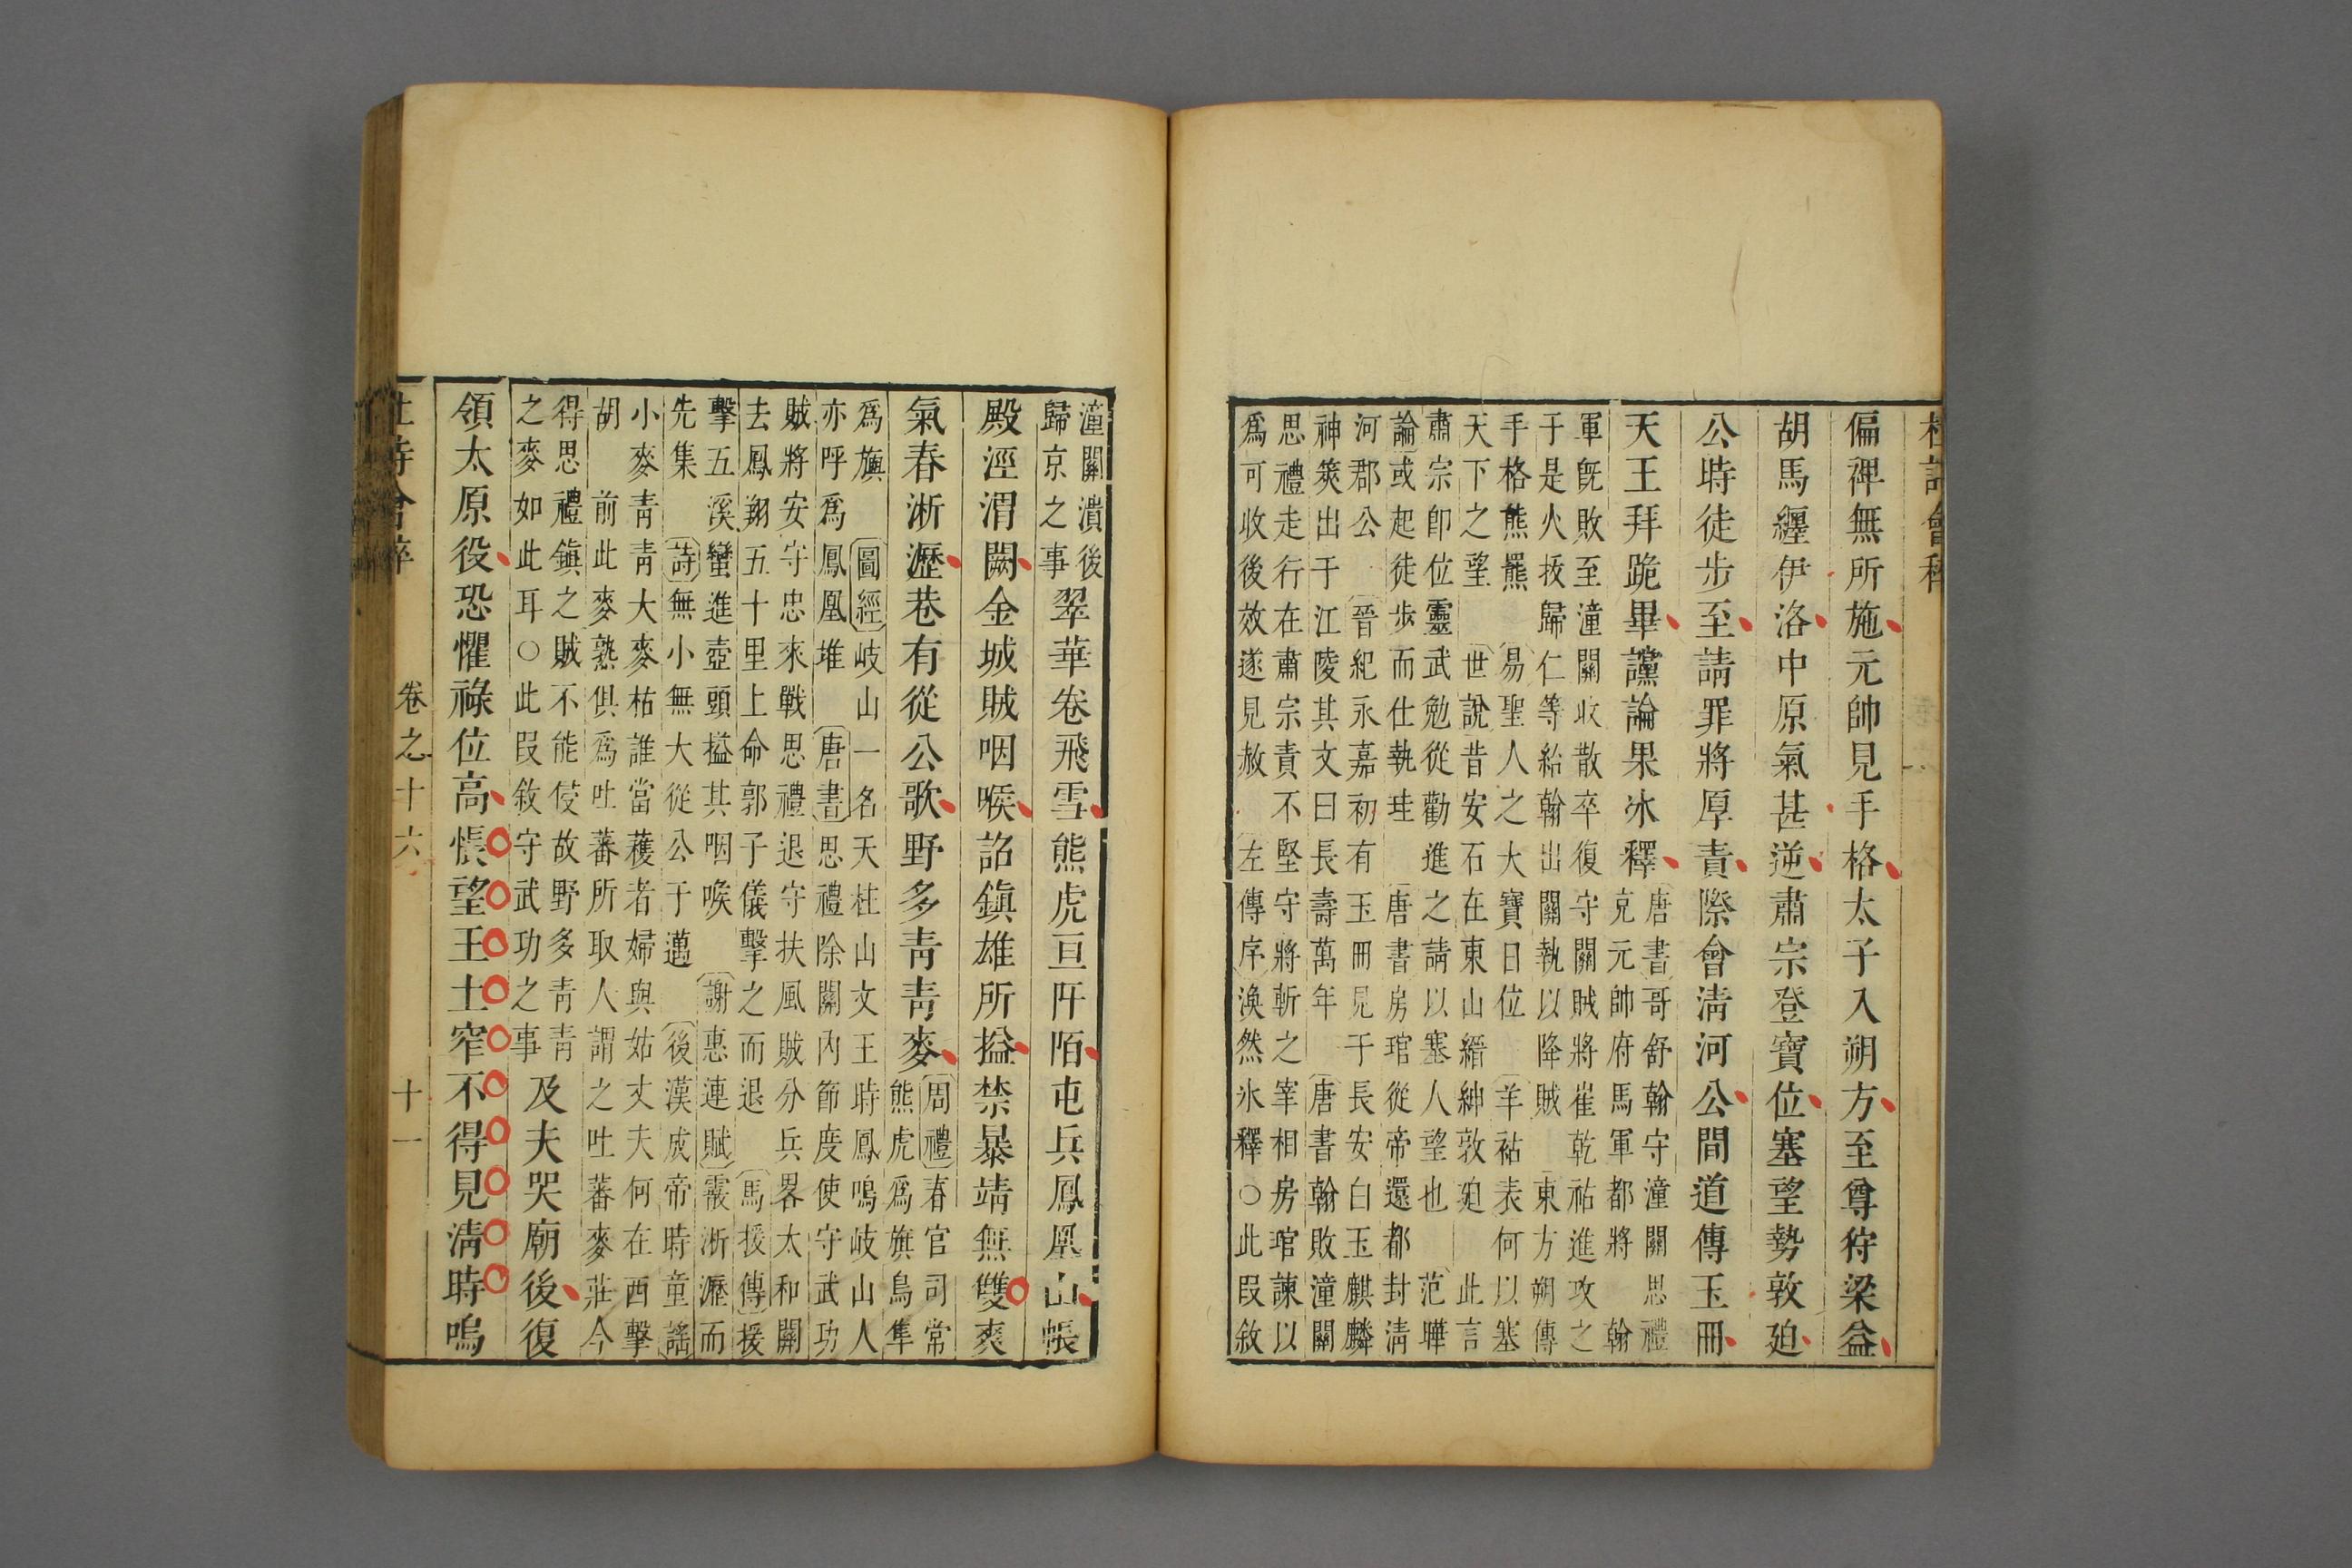 杜詩會稡
偏裨無所施元帥見手格太子入朔方至尊狩梁益
胡馬纏伊洛中原氣甚逆肅宗登寶位塞望勢敦廹
公時徒步至請罪將厚責際會淸河公間道傳玉冊
天王拜跪畢讜論果冰釋
唐書哥舒翰守潼關思禮
克元帥府馬軍都將　翰
軍旣敗至潼關收散卒復守關賊將崔乾祐進攻之
于是火拔歸仁等紿翰出關執以降賊　東方朔傳
手格熊羆　易聖人之大寶曰位　羊祜表何以塞
天下之望　世說昔安石在東山縉紳敦廹　此言
肅宗卽位靈武勉從勸進之請以塞人望也　范曄
論或起徒步而仕執珪　唐書房琯從帝還都封淸
河郡公　晉紀永嘉初有玉冊見于長安白玉麒麟
神璽出于江陵其文曰長壽萬年　唐書翰敗潼關
思禮走行在肅宗責不堅守將斬之宰相房琯諫以
爲可收後效遂見赦　左傳序渙然冰釋○此段敘
潼關潰後
歸京之事
翠華卷飛雪熊虎亘阡陌屯兵鳳凰山帳
殿涇渭闕金城賊咽喉詔鎭雄所搤禁暴靖無雙爽
氣春淅瀝巷有從公歌野多靑靑麥
周禮春官司常
熊虎爲旗鳥隼
爲旟　圖經岐山一名天柱山文王時鳳鳴岐山人
亦呼爲鳳凰堆　唐書思禮除關內節度使守武功
賊將安守忠來戰思禮退守扶風賊分兵畧太和關
去鳳翔五十里上命郭子儀擊之而退　馬援傳援
擊五溪蠻進壺頭搤其咽喉　謝惠連賦霰淅瀝而
先集　詩無小無大從公于邁　後漢成帝時童謠
小麥靑靑大麥枯誰當穫者婦與姑丈夫何在西擊
胡　前此麥熟俱爲吐蕃所取人謂之吐蕃麥莊今
得思禮鎭之賊不能侵故野多靑靑
之麥如此耳○此段敘守武功之事
及夫哭廟後復
領太原役恐懼祿位高悵望王土窄不得見淸時嗚
杜詩會稡　卷之十六　十一